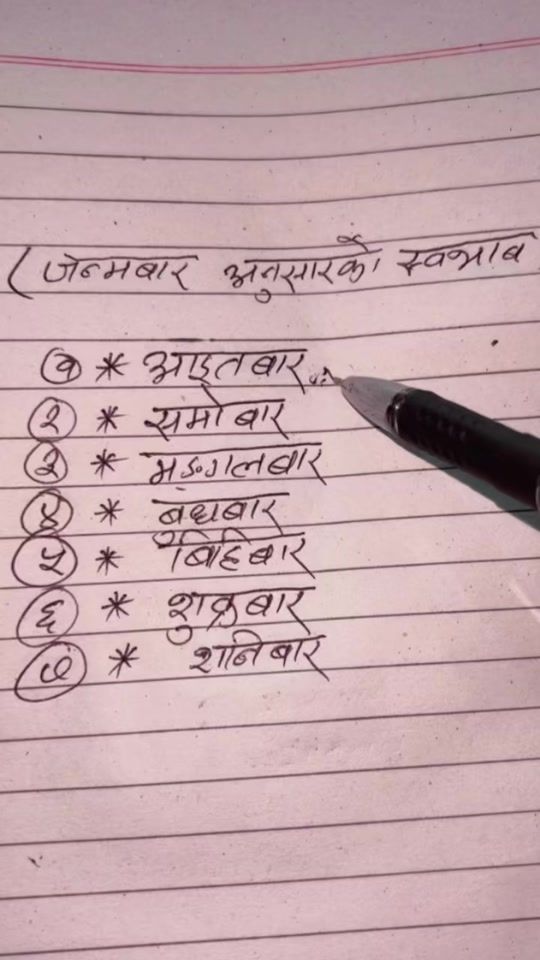 (जन्मबार अनुसारको स्वभाब
१ * आइतबार
२ * समोबार
३ * मङगलबार
४ * बुधबार
५ * बिहिबार
६ * शुक्रबार
७ * शनिबार